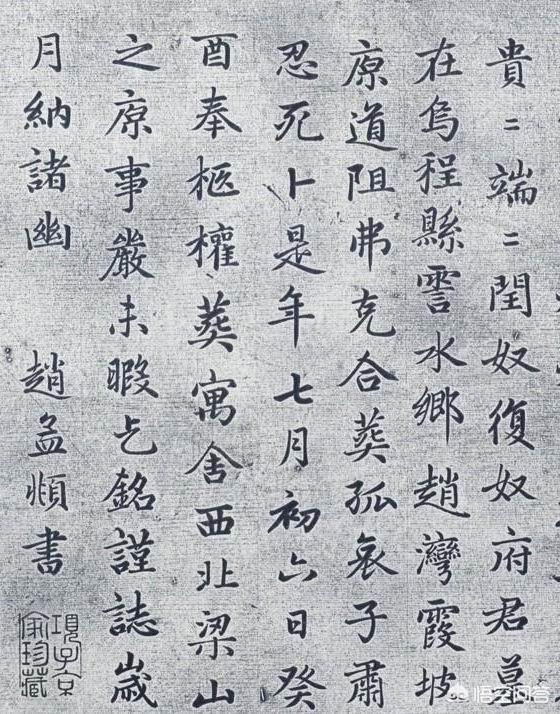 貴〻端〻閏奴復奴府君墓
在烏程縣霅水鄉趙灣霞坡
原道阻弗克合葬孤哀子肅
忍死卜是年七月初六日癸
酉奉柩權葬寓舍西北梁山
之原事嚴未暇乞銘謹誌歲
月納諸幽　趙孟頫書
項子京
家珍藏
悟空问答